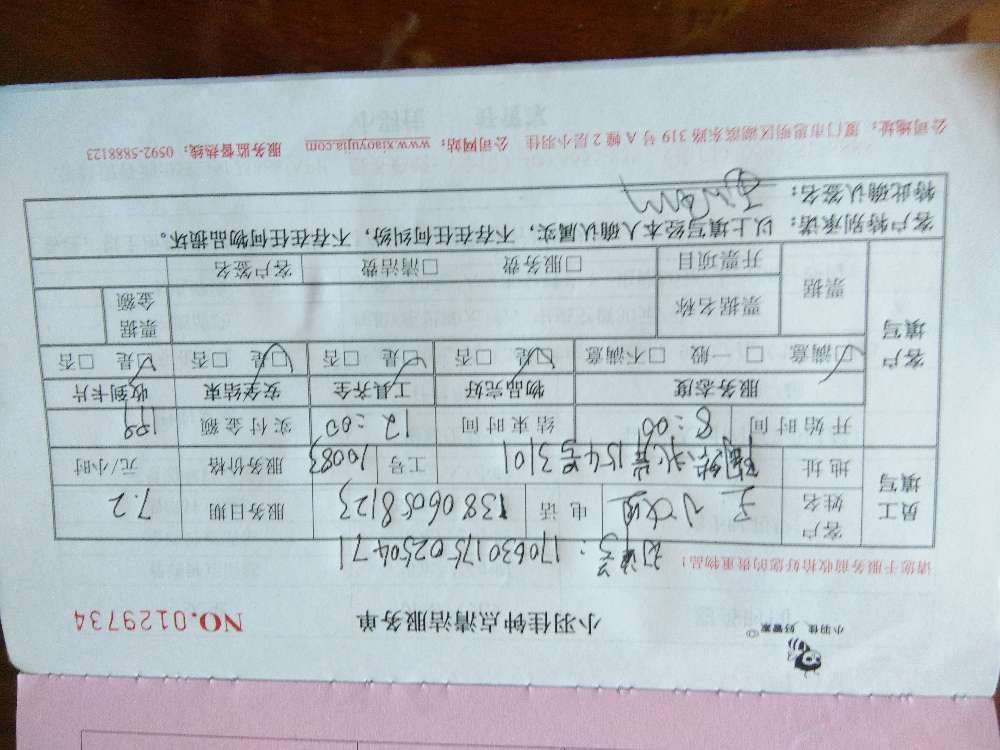 小羽佳 好管家
小羽佳钟点清洁服务单 NO.0129734
请您于服务前收拾好您的贵重物品!
订单号:17063017502504 71
员工填写 客户姓名 王小姐 电话 13806058123 服务日期 7.2
地址 154号3101 工号 10083 服务价格 元/小时
客户填写 开始时间 8:00 结束时间 12:00 实付金额 199
服务态度 物品完好 工具齐全 安全结束 收到卡片
☑满意 □一般 □不满意 ☑是 □否 ☑是 □否 ☑是 □否 ☑是 □否
票据 票据名称 票据金额
开票项目 □服务费 □清洁费 客户签名
客户特别承诺:以上填写经本人确认属实,不存在任何纠纷,不存在任何物品损坏。
特此确认签名:
公司地址:厦门市思明区湖滨东路319号A幢2层小羽佳 公司网站:www.xiaoyujia.com 服务监督热线:0592-5888123